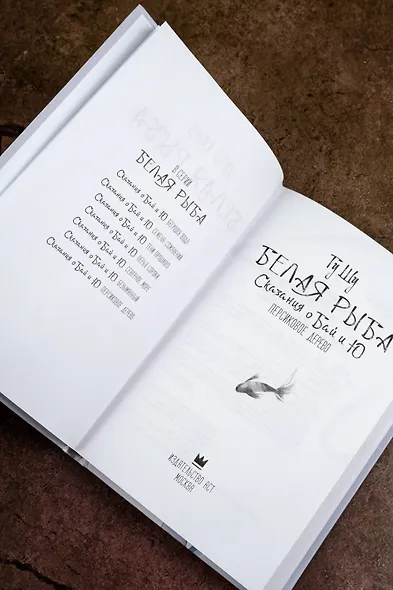 В СЕРИИ
БЕЛАЯ РЫБА
Сказания о Бай и Ю
Сказания о Бай и Ю
Сказания о Бай и Ю ТИНЫ ПРОШЛОГО
Сказания о Бай и Ю
Сказания о Бай и Ю СЕВЕРНОЕ МОРЕ
Сказания о Бай и Ю БЕЗЫМЯННЫЙ
Сказания о Бай и Ю ПЕРСИКОВОЕ ДЕРЕВО
Ту Шу
БЕЛАЯ РЫБА
Сказания о Бай и Ю
ПЕРСИКОВОЕ ДЕРЕВО
ИЗДАТЕЛЬСТВО АСТ
МОСКВА